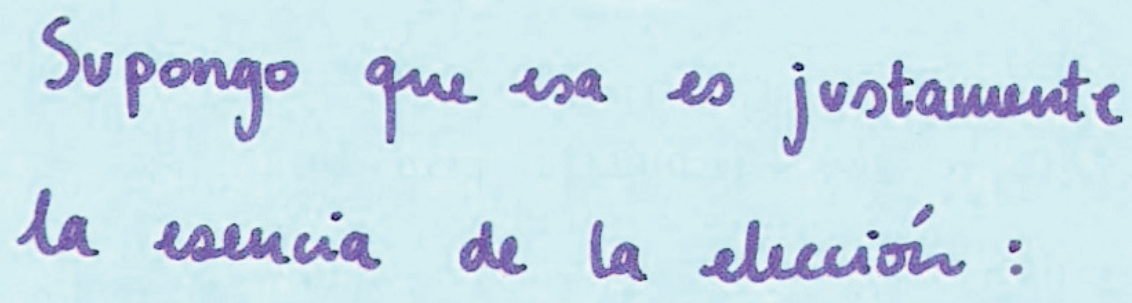 Supongo que esa es justamente
la esencia de la elección: